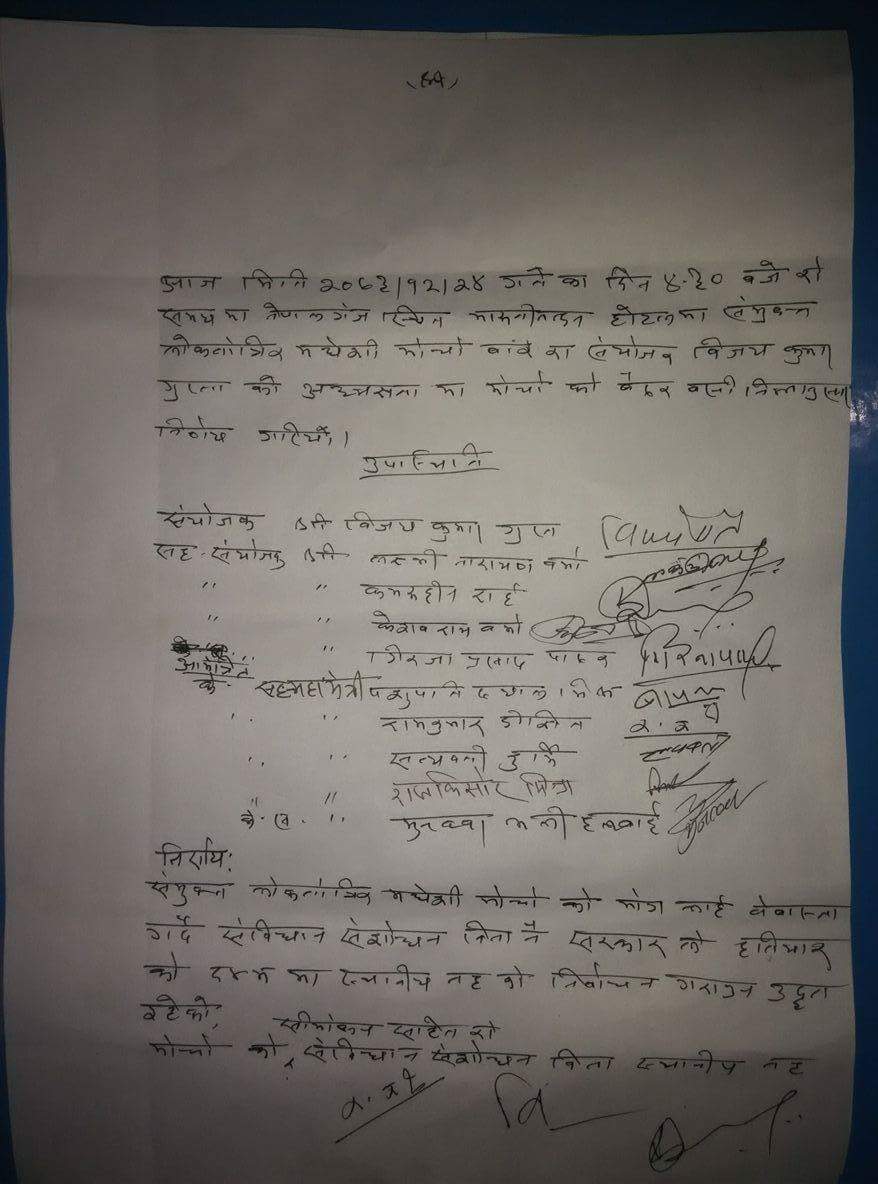 आज मिति २०७३।१२।२४ गते का दिन ४:३० बजे को
समय मा नेपालगंज स्थित होटलमा संयुक्त
लोकतांत्रिक मधेशी मोर्चा बांके का संयोजक विजय कुमार
गुप्ता को अध्यक्षता मा मोर्चा को बैठक बसी निम्नानुसार
निर्णय गरियो।
उपस्थिति
संयोजक श्री विजय कुमार गुप्त
सह-संयोजक श्री लक्ष्मी नारायण वर्मा
" " कमरुद्दीन राई
" " केशव राम वर्मा
" गिरजा प्रसाद पाठक
आमंत्रित
के. सहमहामंत्री पशुपति दयाल मिश्र
" " रामकुमार दीक्षित
" " सत्यवती कुर्मी
" " राजकिसोर मिश्रा
के. स. " हलवाई
निर्णय:
संयुक्त लोकतांत्रिक मधेशी मोर्चा को मांग लाई वेवास्ता
गर्दै संविधान संशोधन विना नै सरकार ले हतियार
को दम्भ मा स्थानीय तह को निर्वाचन गराउन उद्दत
रहेको,
सीमांकन सहित को
मोर्चा को संविधान संशोधन विना स्थानीय तह